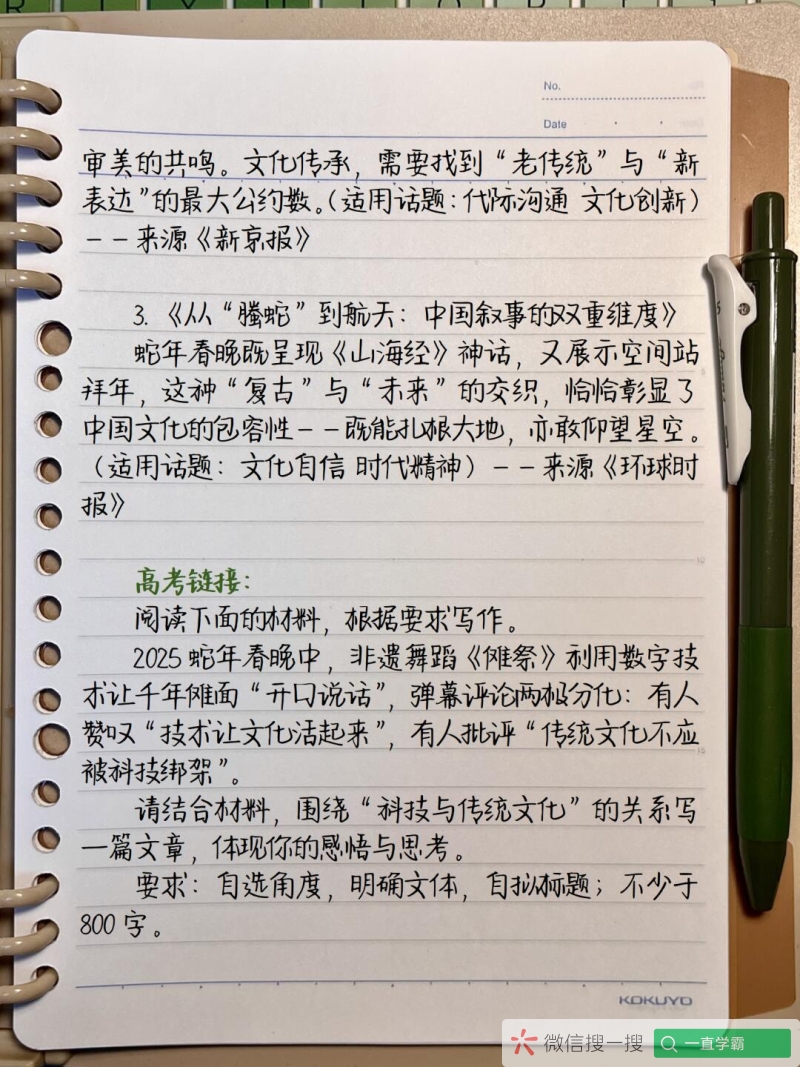 No.
Date
审美的共鸣。文化传承，需要找到“老传统”与“新
表达”的最大公约数。（适用话题：代际沟通 文化创新）
--来源《新京报》
3.《从“螣蛇”到航天：中国叙事的双重维度》
蛇年春晚既呈现《山海经》神话，又展示空间站
拜年，这种“复古”与“未来”的交织，恰恰彰显了
中国文化的包容性--既能扎根大地，亦敢仰望星空。
（适用话题：文化自信 时代精神）--来源《环球时
报》
高考链接：
阅读下面的材料，根据要求写作。
2025蛇年春晚中，非遗舞蹈《傩祭》利用数字技
术让千年傩面“开口说话”，弹幕评论两极分化：有人
赞叹“技术让文化活起来”，有人批评“传统文化不应
被科技绑架”。
请结合材料，围绕“科技与传统文化”的关系写
一篇文章，体现你的感悟与思考。
要求：自选角度，明确文体，自拟标题；不少于
800字。
KOKUYO
微信搜一搜
一直学霸